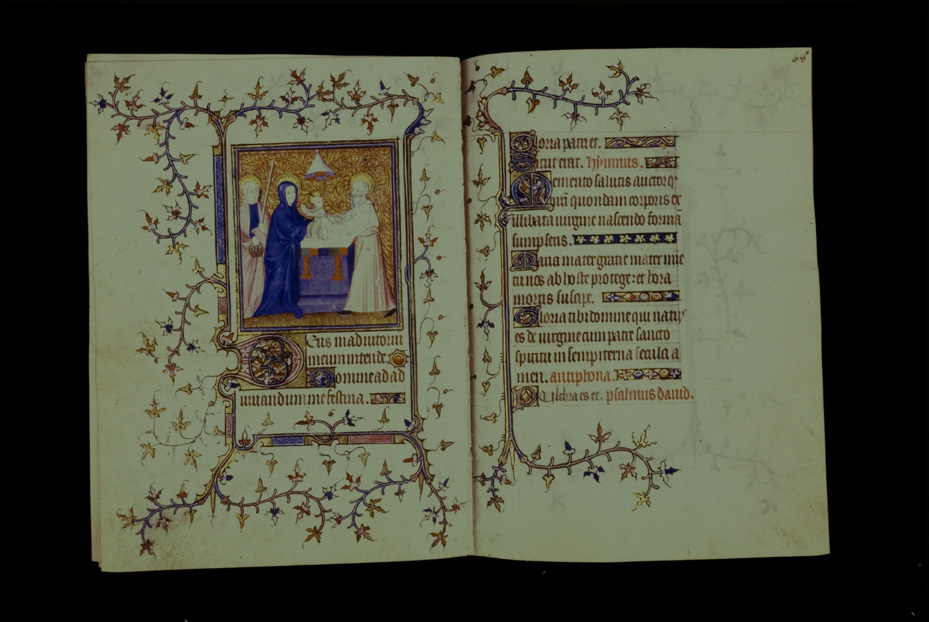 Eus in adiutoriū
meum intende.
Domine ad ad
iuuandum me festina.
Gloria patri et.
Sicut erat. hymnus.
Memento salutis auctor q̄
nr̄i quondam corporis ex
illibata uirgine nascendo formā
sumpseris.
Maria mater gratie mater mie
tu nos ab hoste protege et hora
mortis suscipe.
Gloria tibi domine qui natus
es de uirgine cum patre sancto
spiritu in sempiterna secula a
men. antiphona.
Pulchra es et. psalmus dauid.